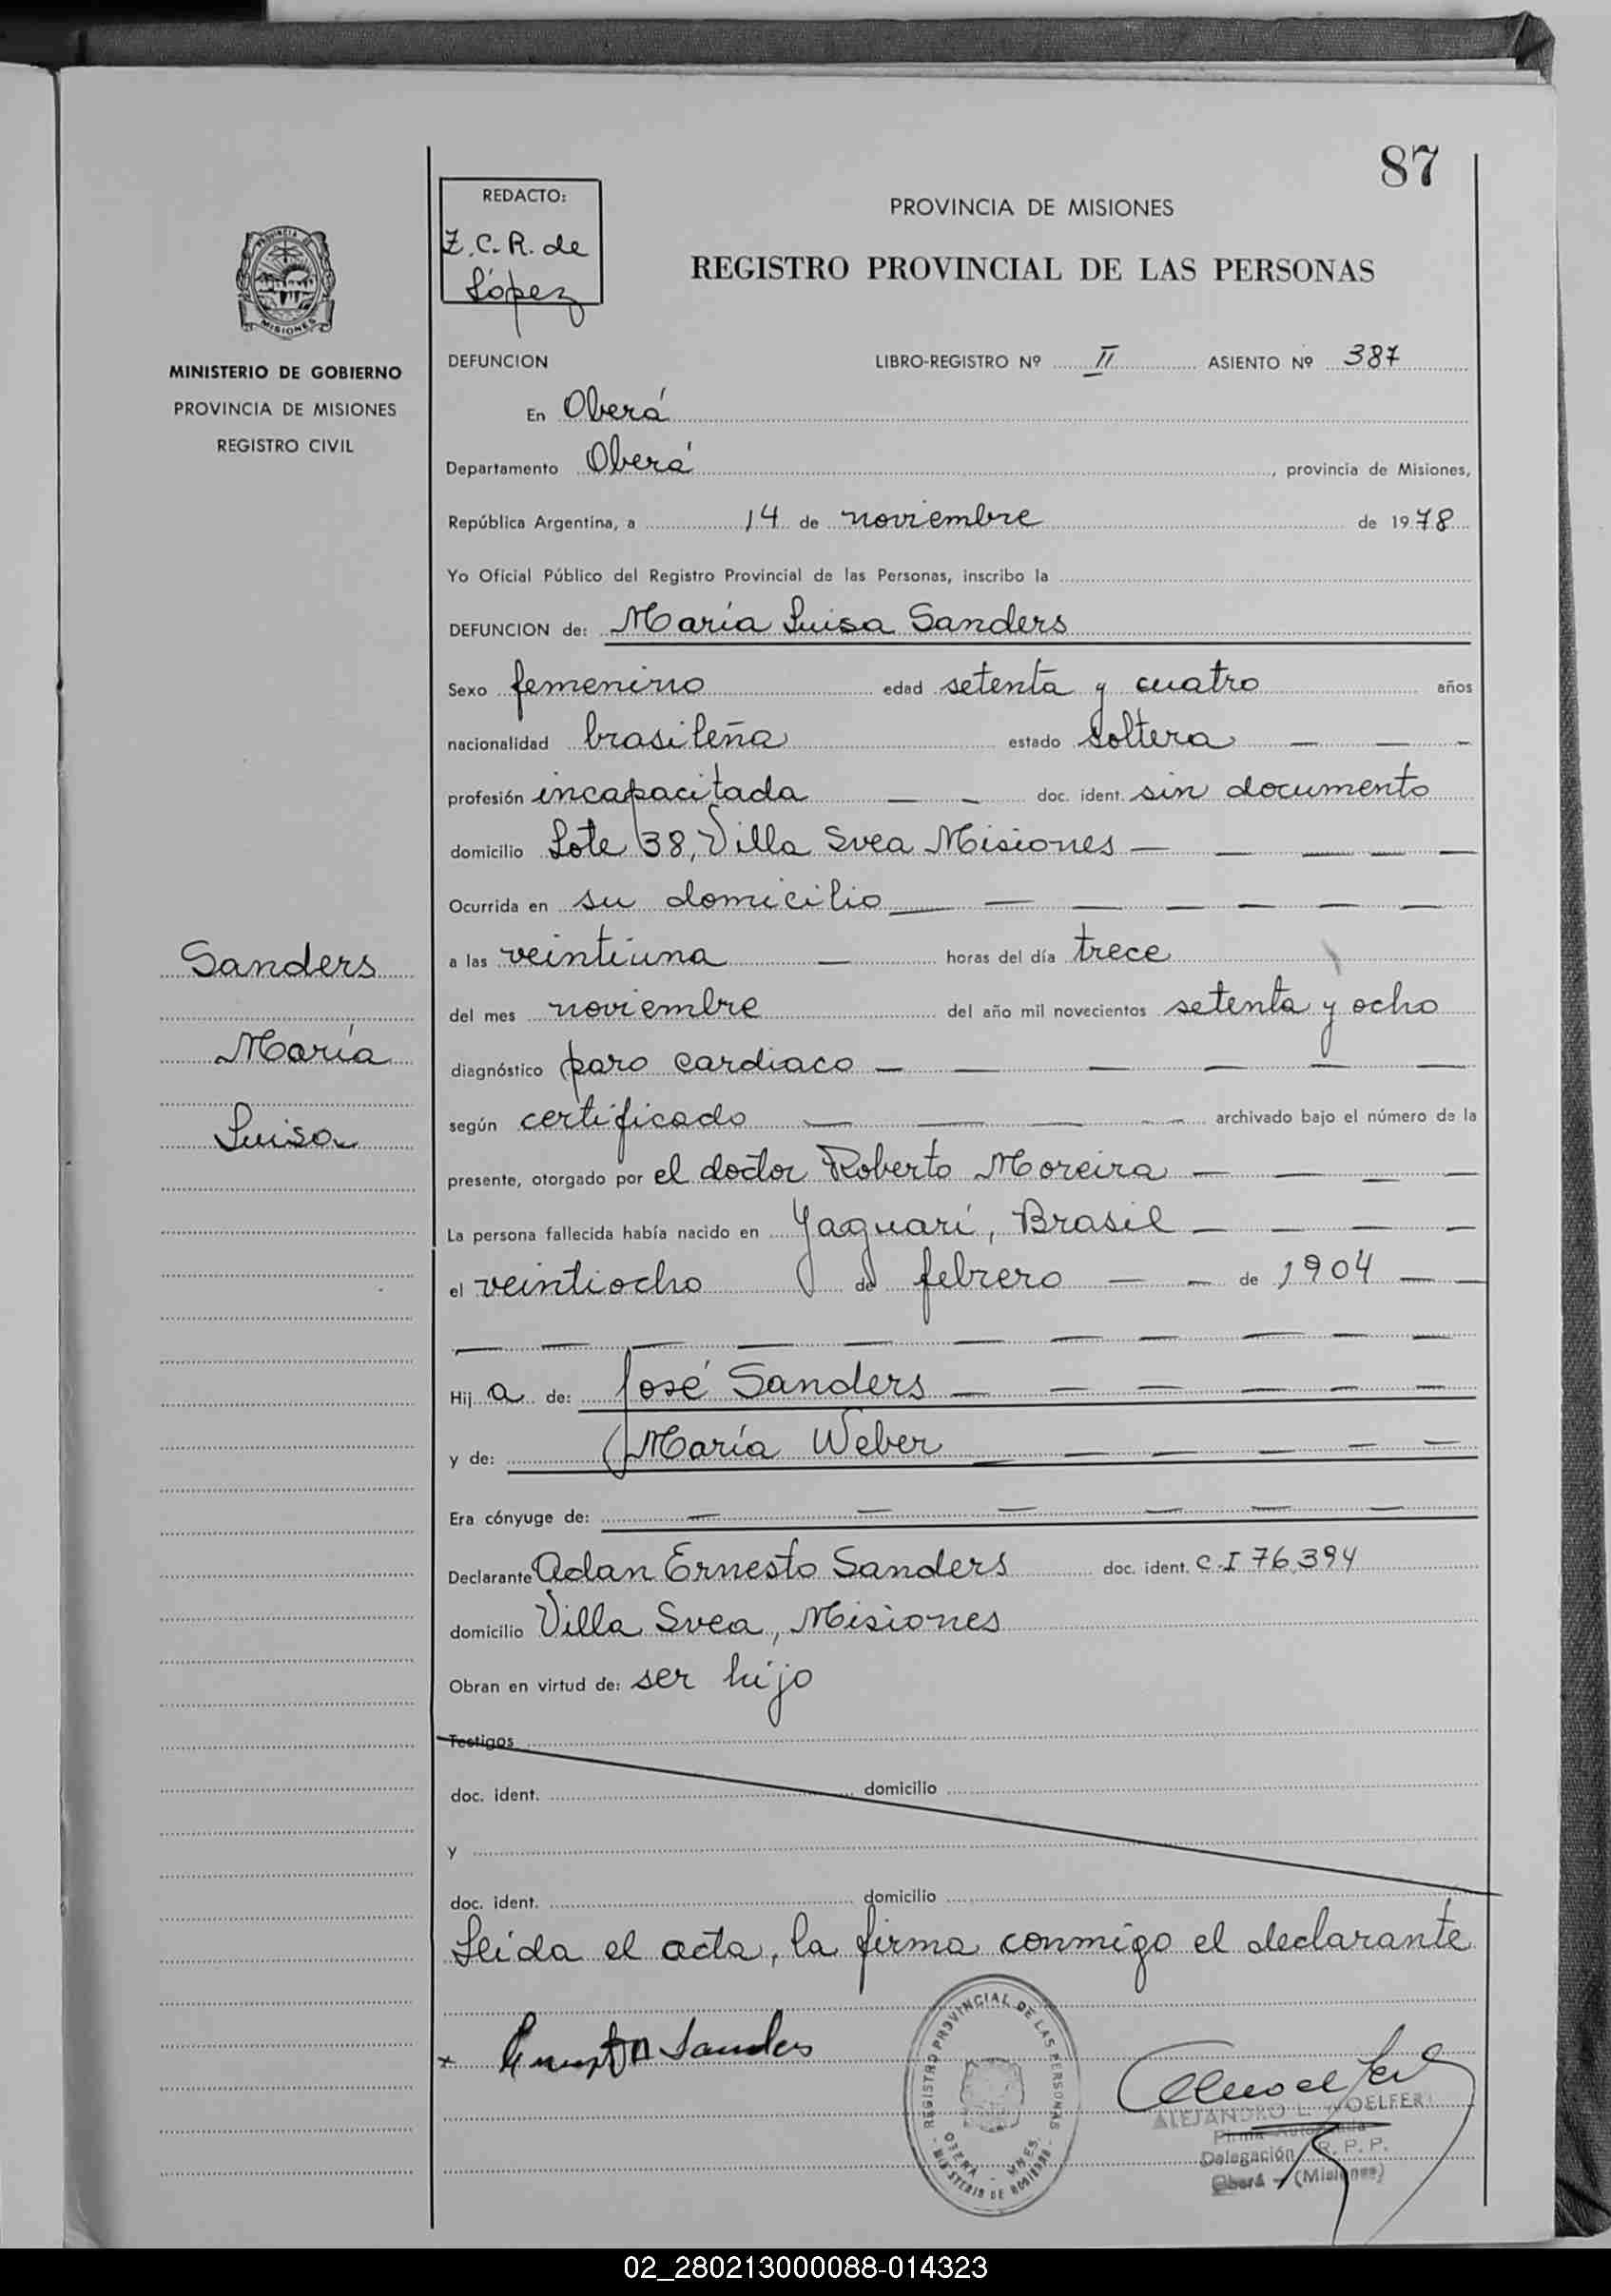 87
REDACTO:
Z.C.R. de
López
PROVINCIA DE MISIONES
REGISTRO PROVINCIAL DE LAS PERSONAS
PROVINCIA DE
MISIONES
MINISTERIO DE GOBIERNO
PROVINCIA DE MISIONES
REGISTRO CIVIL
DEFUNCION LIBRO-REGISTRO Nº II ASIENTO Nº 387
En Oberá
Departamento Oberá, provincia de Misiones,
República Argentina, a 14 de noviembre de 1978
Yo Oficial Público del Registro Provincial de las Personas, inscribo la
DEFUNCION de: María Luisa Sanders
Sexo femenino edad setenta y cuatro años
nacionalidad brasileña estado soltera
profesión incapacitada doc. ident. sin documento
domicilio Lote 38, Villa Svea Misiones
Ocurrida en su domicilio
Sanders
María
Luisa
a las veintiuna horas del día trece
del mes noviembre del año mil novecientos setenta y ocho
diagnóstico paro cardiaco
según certificado archivado bajo el número de la
presente, otorgado por el doctor Roberto Moreira
La persona fallecida había nacido en Yaguarí, Brasil
el veintiocho de febrero de 1904
Hija de: José Sanders
y de: María Weber
Era cónyuge de:
Declarante Adan Ernesto Sanders doc. ident. C.I 76.394
domicilio Villa Svea, Misiones
Obran en virtud de: ser hijo
Testigos
doc. ident. domicilio
y
doc. ident. domicilio
Leida el acta, la firma conmigo el declarante
x Ernesto Sanders
REGISTRO PROVINCIAL DE LAS PERSONAS
OBERA - MNES.
MINISTERIO DE GOBIERNO
ALEJANDRO L.
Firma Autorizada
Delegación R. P. P.
Oberá - (Misiones)
02_280213000088-014323